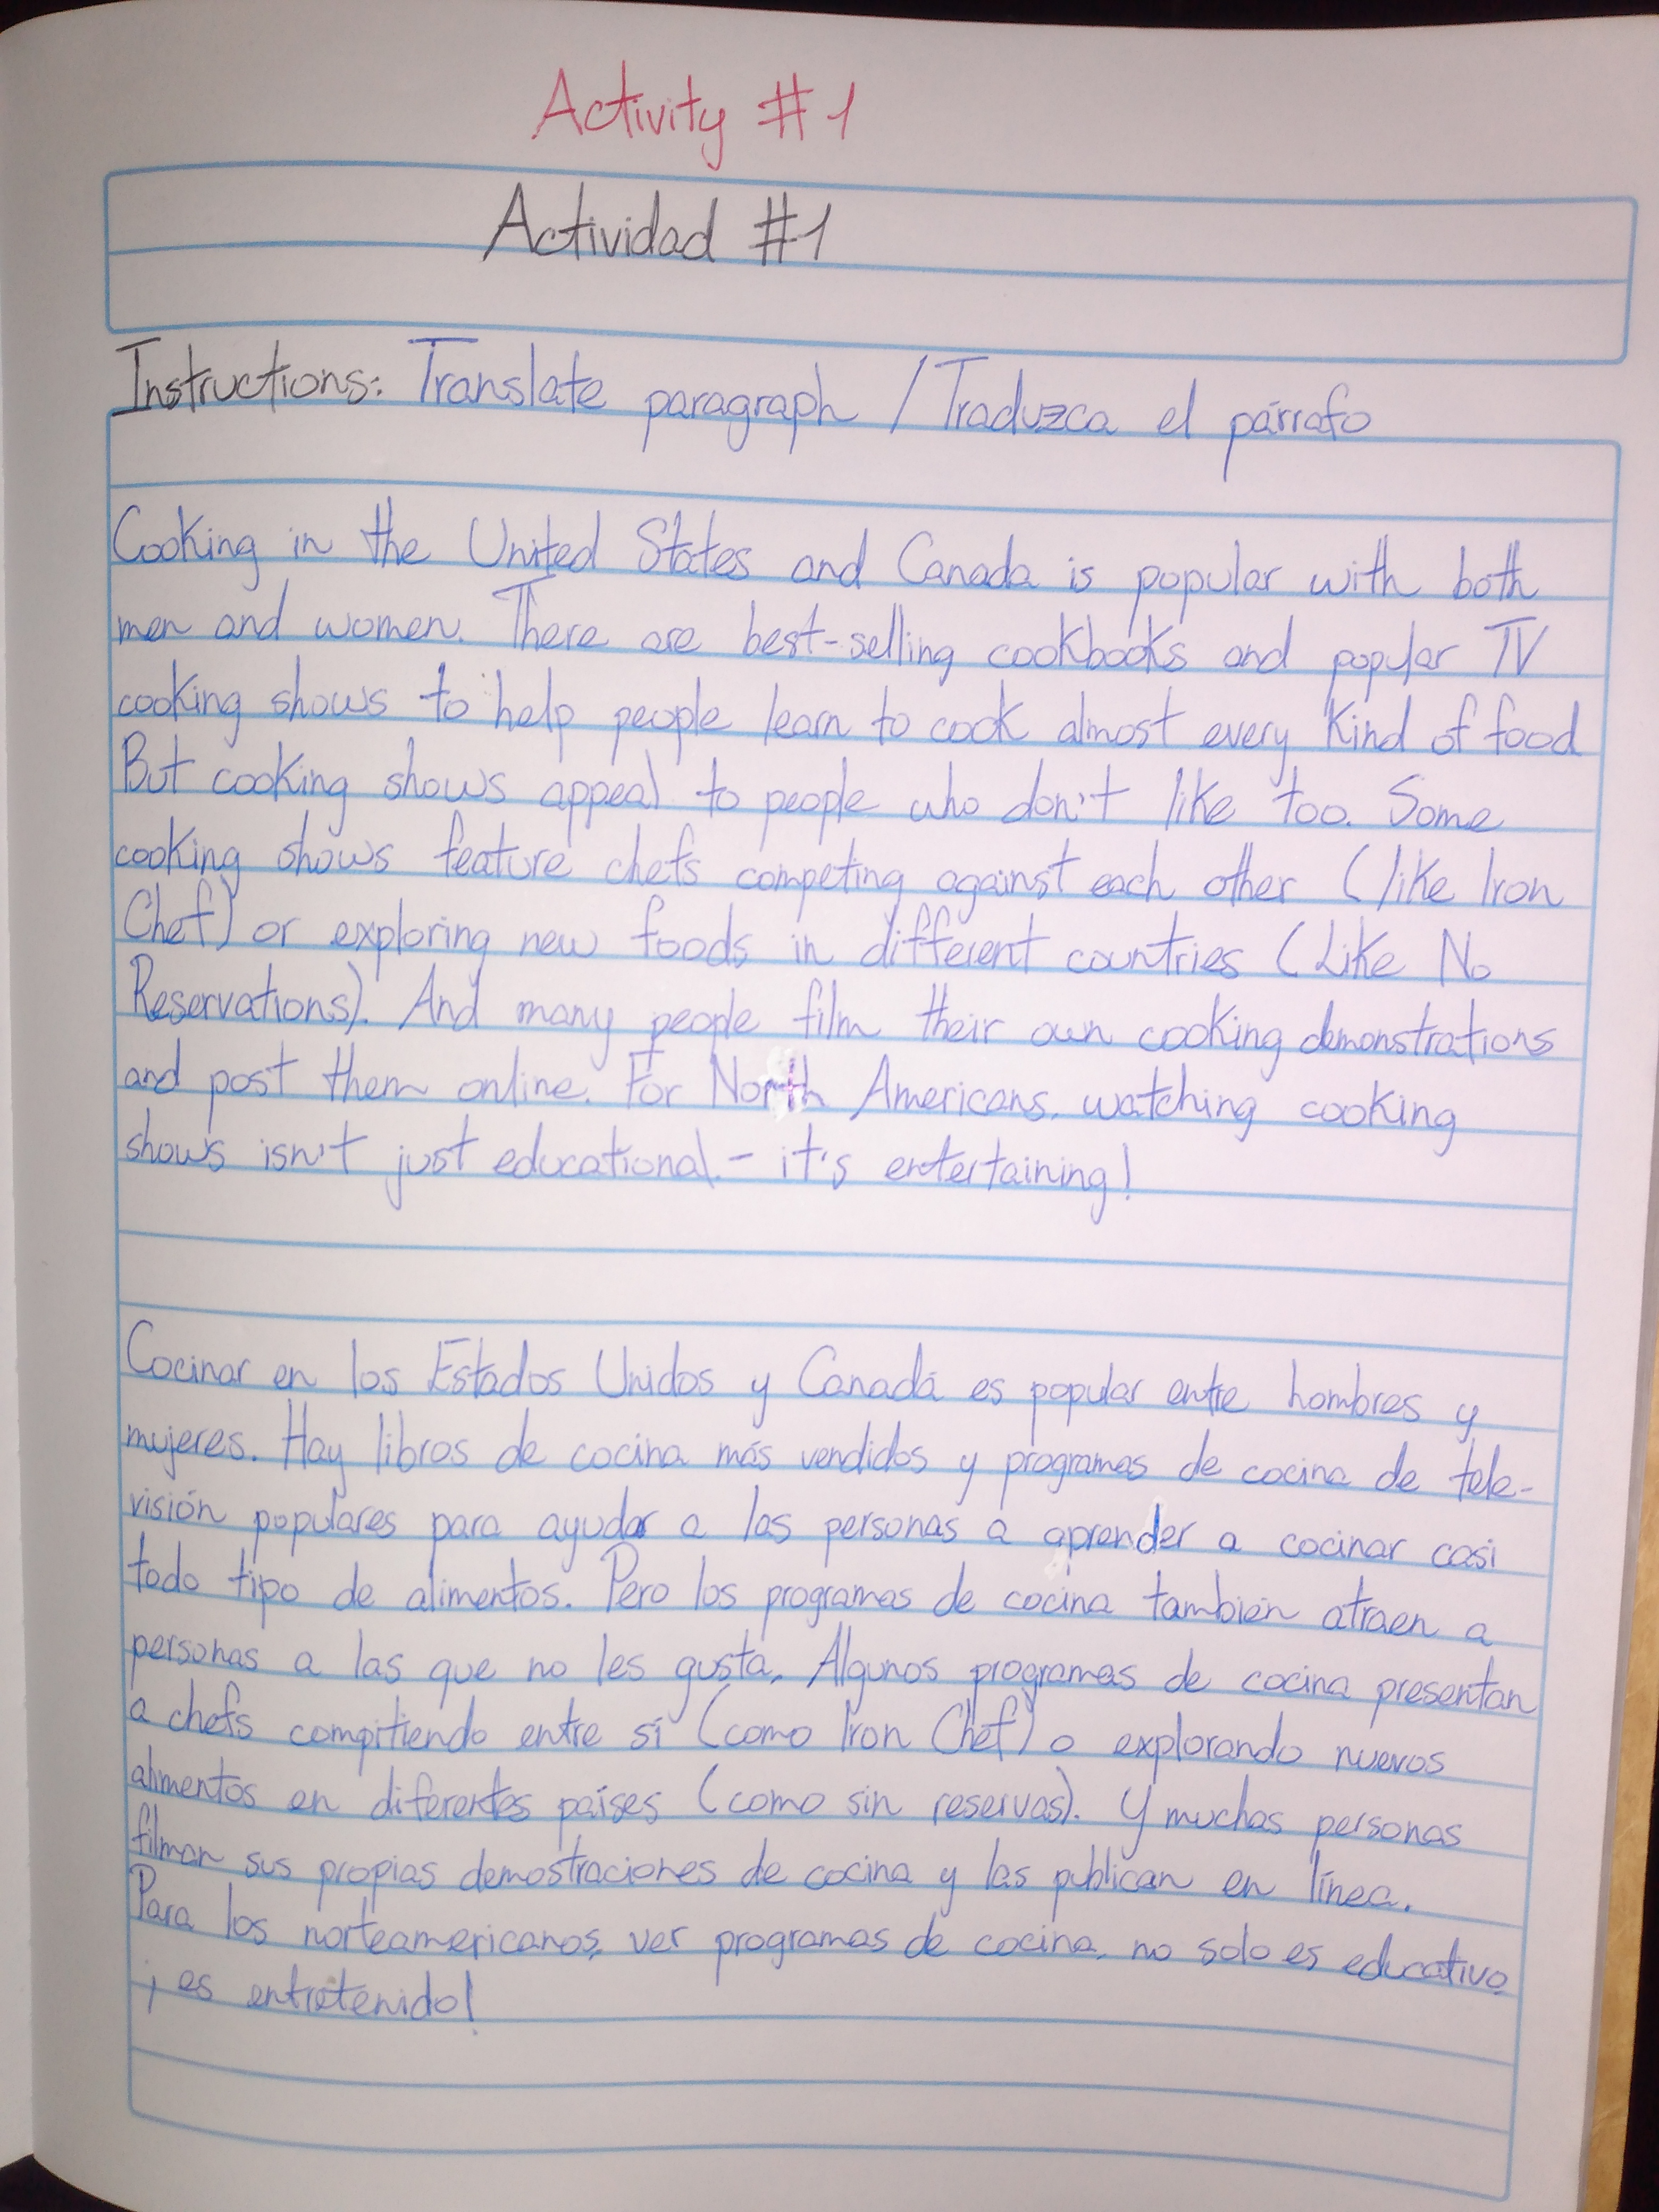 Activity #1
Actividad #1
Instructions: Translate paragraph / Traduzca el párrafo
Cooking in the United States and Canada is popular with both
men and women. There are best-selling cookbooks and popular TV
cooking shows to help people learn to cook almost every kind of food
But cooking shows appeal to people who don't like too. Some
cooking shows feature chefs competing against each other (like Iron
Chef) or exploring new foods in different countries (Like No
Reservations). And many people film their own cooking demonstrations
and post them online. For North Americans, watching cooking
shows isn't just educational - it's entertaining!
Cocinar en los Estados Unidos y Canadá es popular entre hombres y
mujeres. Hay libros de cocina más vendidos y programas de cocina de tele-
visión populares para ayudar a las personas a aprender a cocinar casi
todo tipo de alimentos. Pero los programas de cocina también atraen a
personas a las que no les gusta. Algunos programas de cocina presentan
a chefs compitiendo entre sí (como Iron Chef) o explorando nuevos
alimentos en diferentes países (como sin reservas). Y muchas personas
filman sus propias demostraciones de cocina y las publican en línea.
Para los norteamericanos, ver programas de cocina, no solo es educativo
¡ es entretenido!